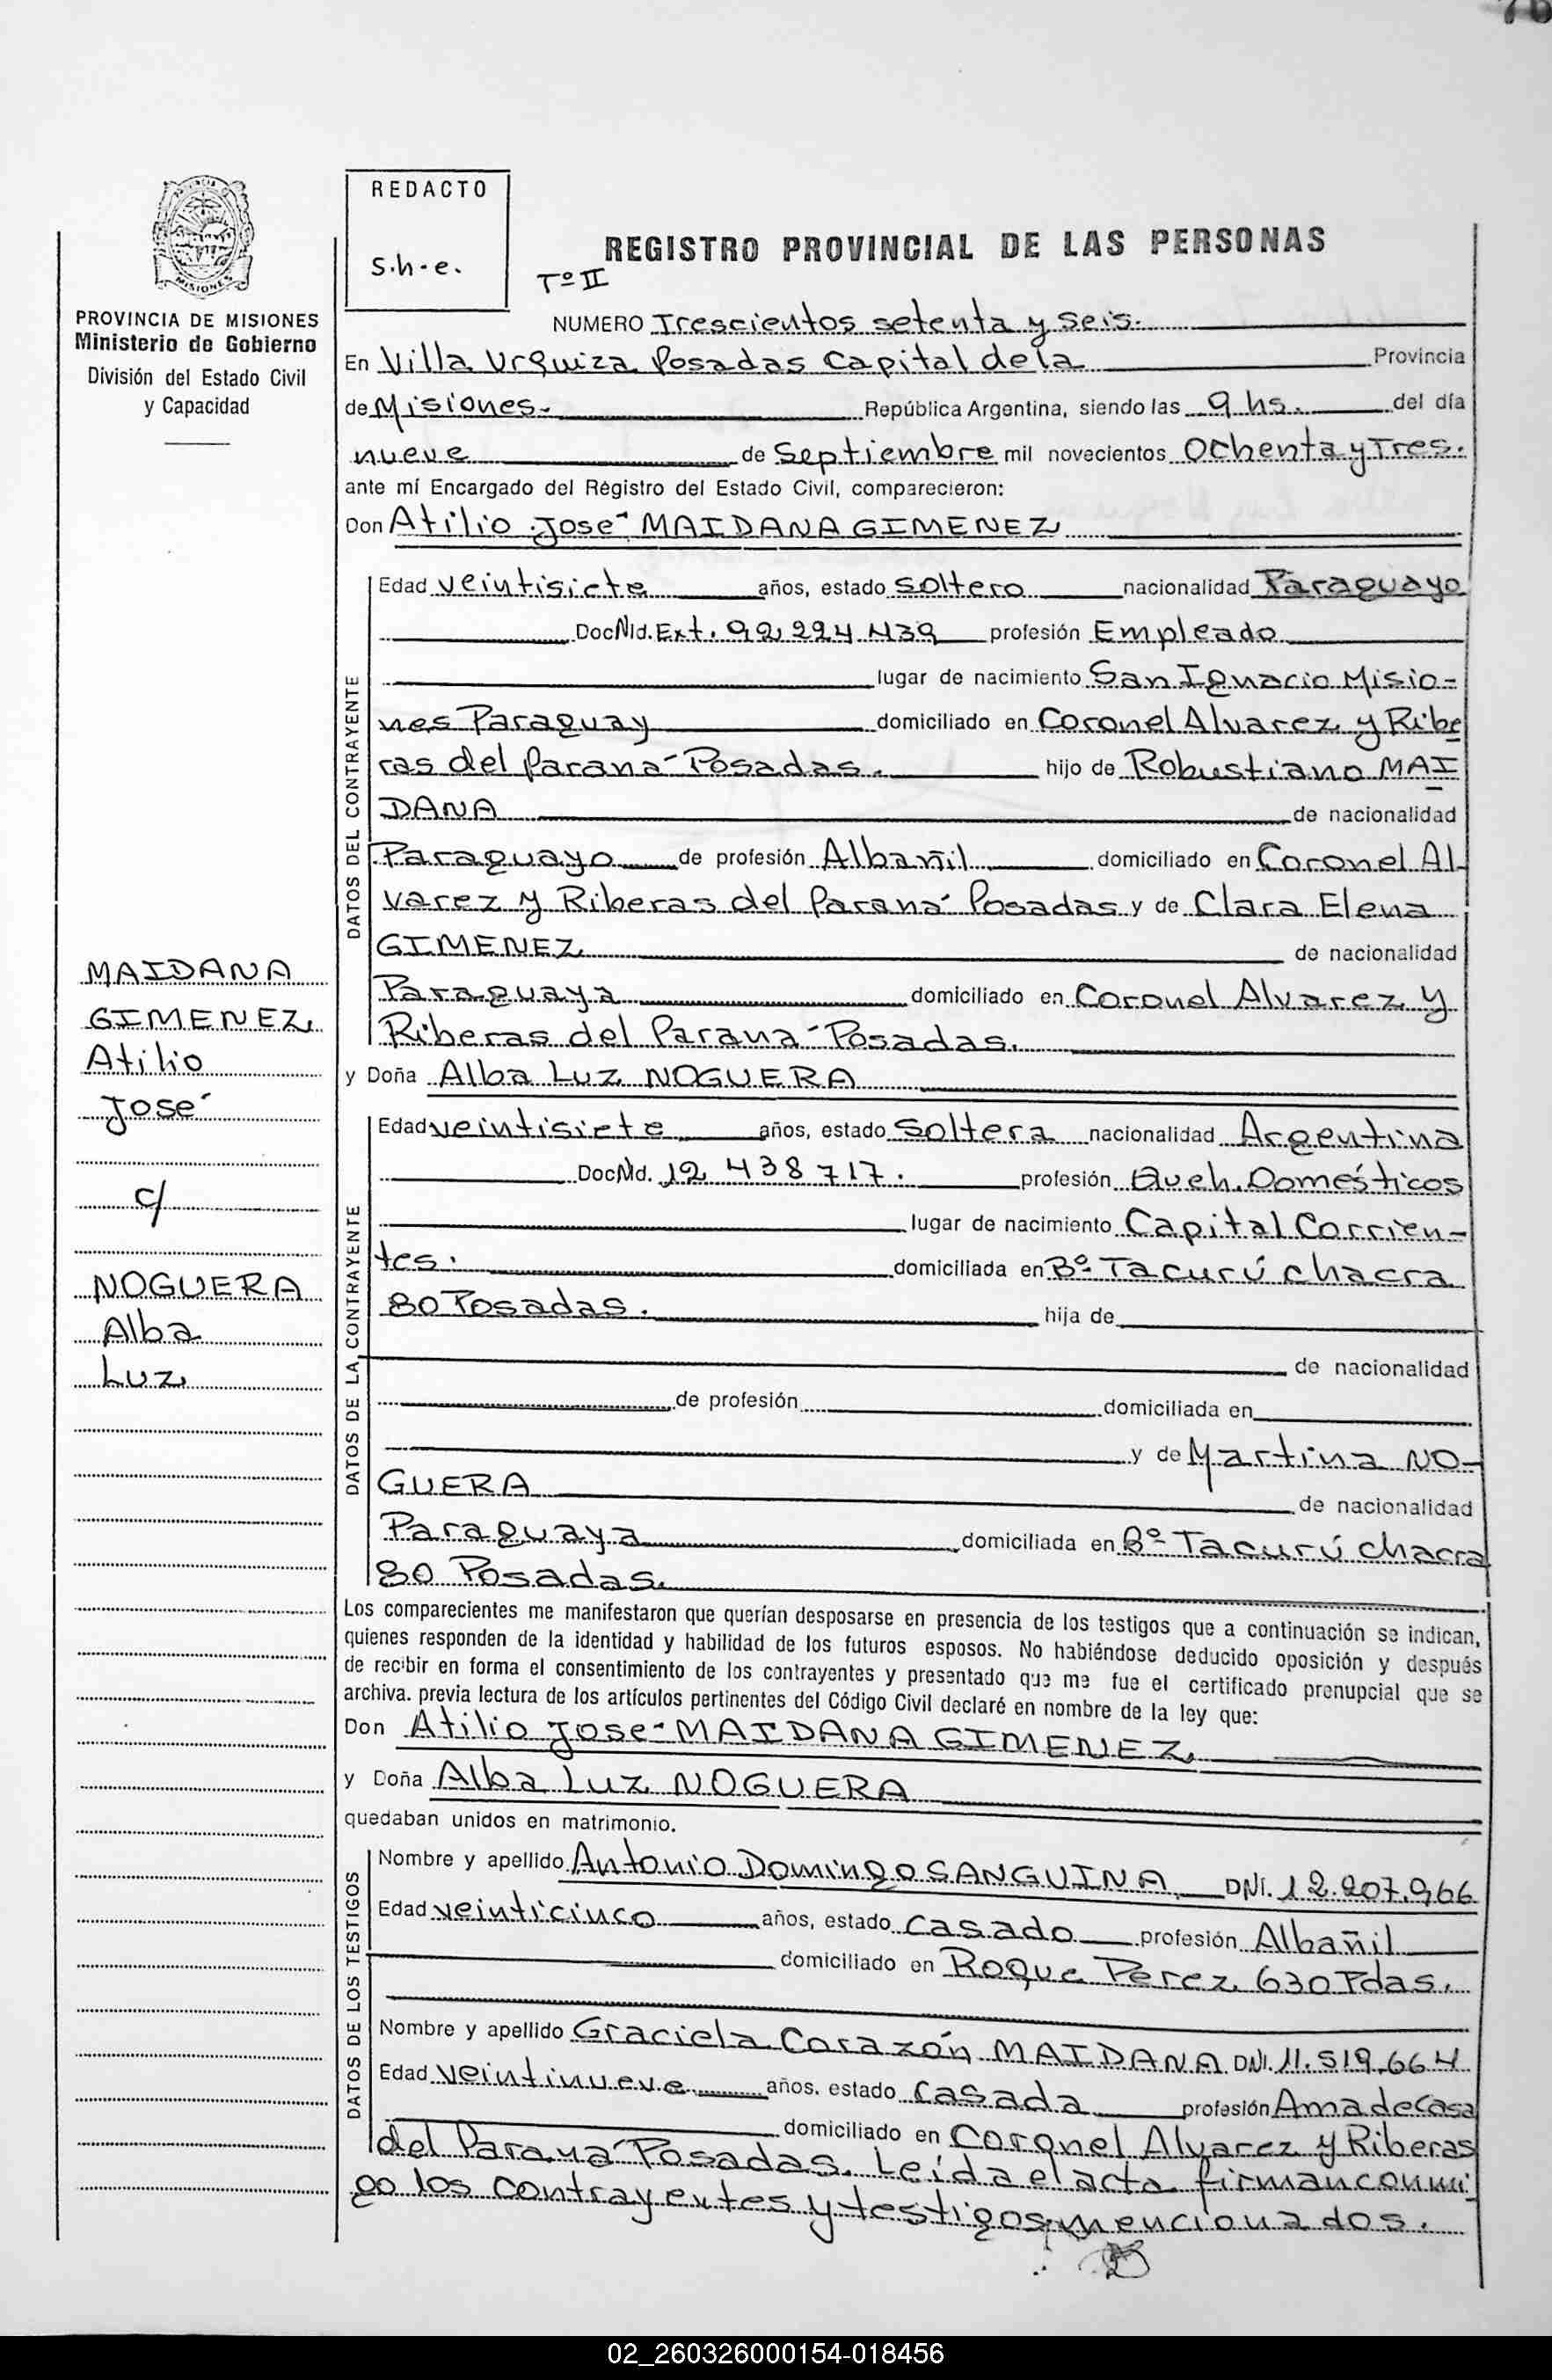 76
REDACTO
S.h-e.
REGISTRO PROVINCIAL DE LAS PERSONAS
Tº II
PROVINCIA DE MISIONES
Ministerio de Gobierno
División del Estado Civil
y Capacidad
NUMERO Trescientos setenta y seis.
En Villa Urquiza Posadas Capital de la Provincia
de Misiones.- República Argentina, siendo las 9 hs. del día
nueve de Septiembre mil novecientos Ochenta y Tres.
ante mí Encargado del Registro del Estado Civil, comparecieron:
Don Atilio José MAIDANA GIMENEZ
DATOS DEL CONTRAYENTE
Edad veintisiete años, estado soltero nacionalidad Paraguayo
Doc Nid. Ext. 92.224.439 profesión Empleado
lugar de nacimiento San Ignacio Misio-
nes Paraguay domiciliado en Coronel Alvarez y Ribe
ras del Paraná Posadas. hijo de Robustiano MAI
DANA de nacionalidad
Paraguayo de profesión Albañil domiciliado en Coronel Al-
varez y Riberas del Paraná Posadas y de Clara Elena
GIMENEZ de nacionalidad
Paraguaya domiciliado en Coronel Alvarez y
Riberas del Paraná Posadas.
y Doña Alba Luz NOGUERA
MAIDANA
GIMENEZ
Atilio
José
c/
NOGUERA
Alba
Luz
DATOS DE LA CONTRAYENTE
Edad veintisiete años, estado soltera nacionalidad Argentina
Doc Nid. 12 438 717. profesión Queh. Domésticos
lugar de nacimiento Capital Corrien-
tes. domiciliada en Bº Tacurú chacra
80 Posadas. hija de
de nacionalidad
de profesión domiciliada en
y de Martina NO-
GUERA de nacionalidad
Paraguaya domiciliada en Bº Tacurú chacra
80 Posadas.
Los comparecientes me manifestaron que querían desposarse en presencia de los testigos que a continuación se indican,
quienes responden de la identidad y habilidad de los futuros esposos. No habiéndose deducido oposición y después
de recibir en forma el consentimiento de los contrayentes y presentado que me fue el certificado prenupcial que se
archiva. previa lectura de los artículos pertinentes del Código Civil declaré en nombre de la ley que:
Don Atilio José MAIDANA GIMENEZ
y Doña Alba Luz NOGUERA
quedaban unidos en matrimonio.
DATOS DE LOS TESTIGOS
Nombre y apellido Antonio Domingo SANGUINA DNI. 12.207.966
Edad veinticinco años, estado casado profesión Albañil
domiciliado en Roque Perez 630 Pdas.
Nombre y apellido Graciela Corazón MAIDANA DNI. 11.519.664
Edad veintinueve años. estado casada profesión Ama de Casa
domiciliado en Coronel Alvarez y Riberas
del Paraná Posadas. Leída el acta firman conmi
go los contrayentes y testigos mencionados.
02_260326000154-018456